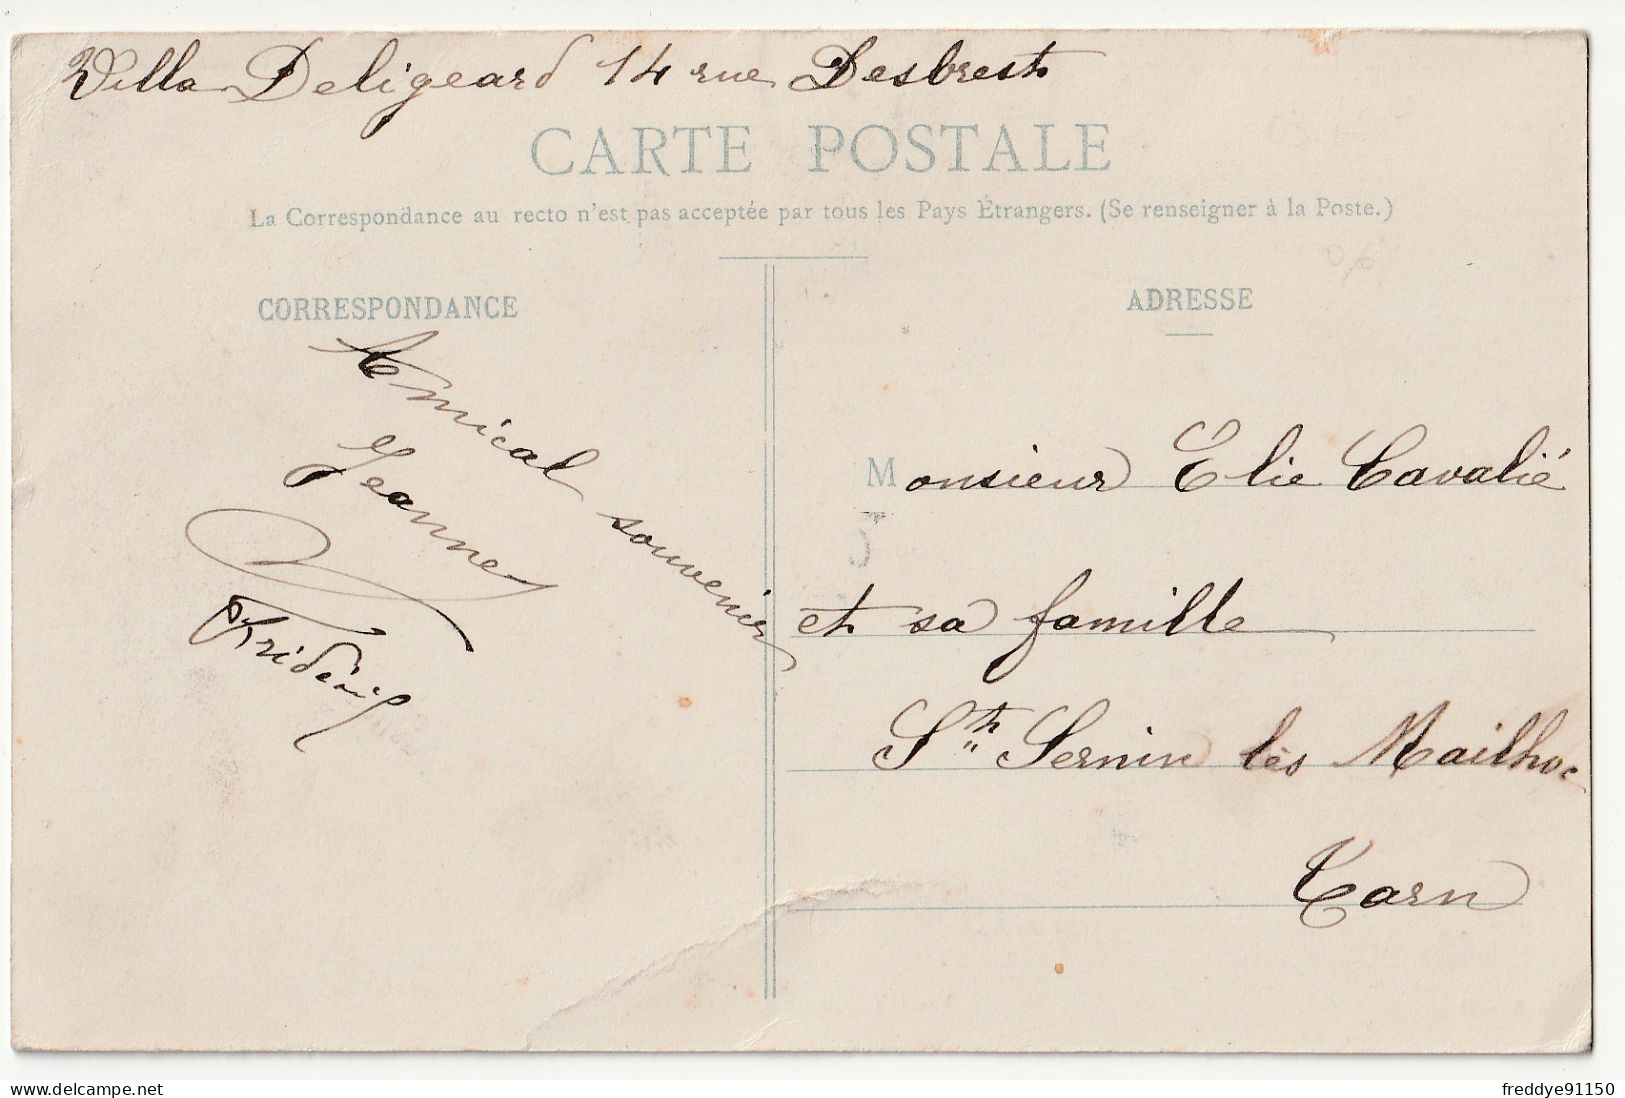 Villa Deligeard 14 rue Desbrest
CARTE POSTALE
La Correspondance au recto n'est pas acceptée par tous les Pays Étrangers. (Se renseigner à la Poste.)
CORRESPONDANCE
ADRESSE
Amical souvenir
Jeanne
Monsieur Elie Cavalié
et sa famille
St Sernin lès Mailhoc
Tarn
delcampe.net
freddye91150